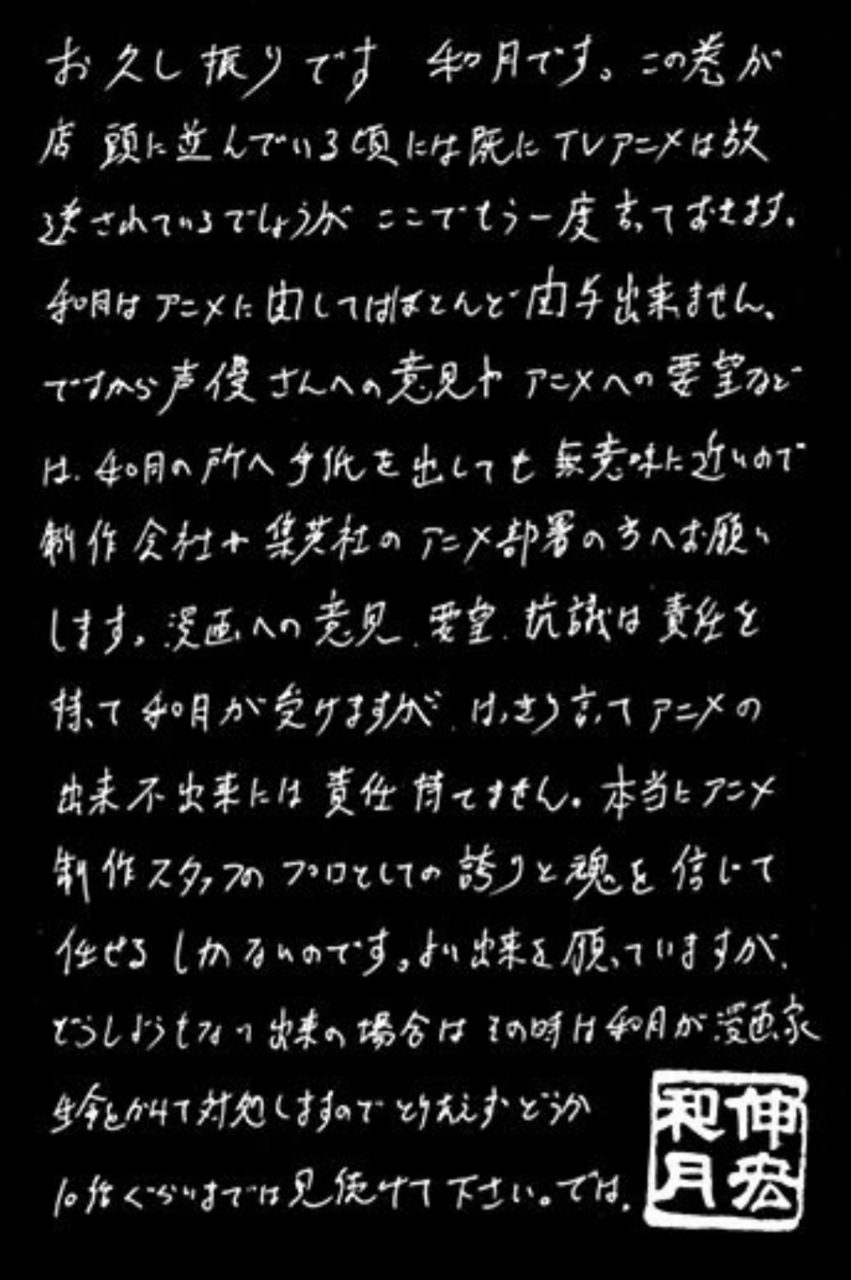 お久し振りです 和月です。この巻が
店頭に並んでいる頃には既にTVアニメは放
送されているでしょうが ここでもう一度言っておきます。
和月はアニメに関してはほとんど関与出来ません。
ですから声優さんへの意見や アニメへの要望など
は、和月の所へ手紙を出しても無意味に近いので
制作会社や集英社のアニメ部署の方へお願い
します。漫画への意見、要望、抗議は責任を
持って和月が受けますが、はっきり言ってアニメの
出来不出来には責任持てません。本当にアニメ
制作スタッフのプロとしての誇りと魂を信じて
任せるしかないのです。よい出来を願っていますが、
どうしようもない出来の場合はその時は和月が漫画家
生命をかけて対処しますのでとりあえずどうか
10話ぐらいまでは見続けて下さい。では。
伸宏
和月